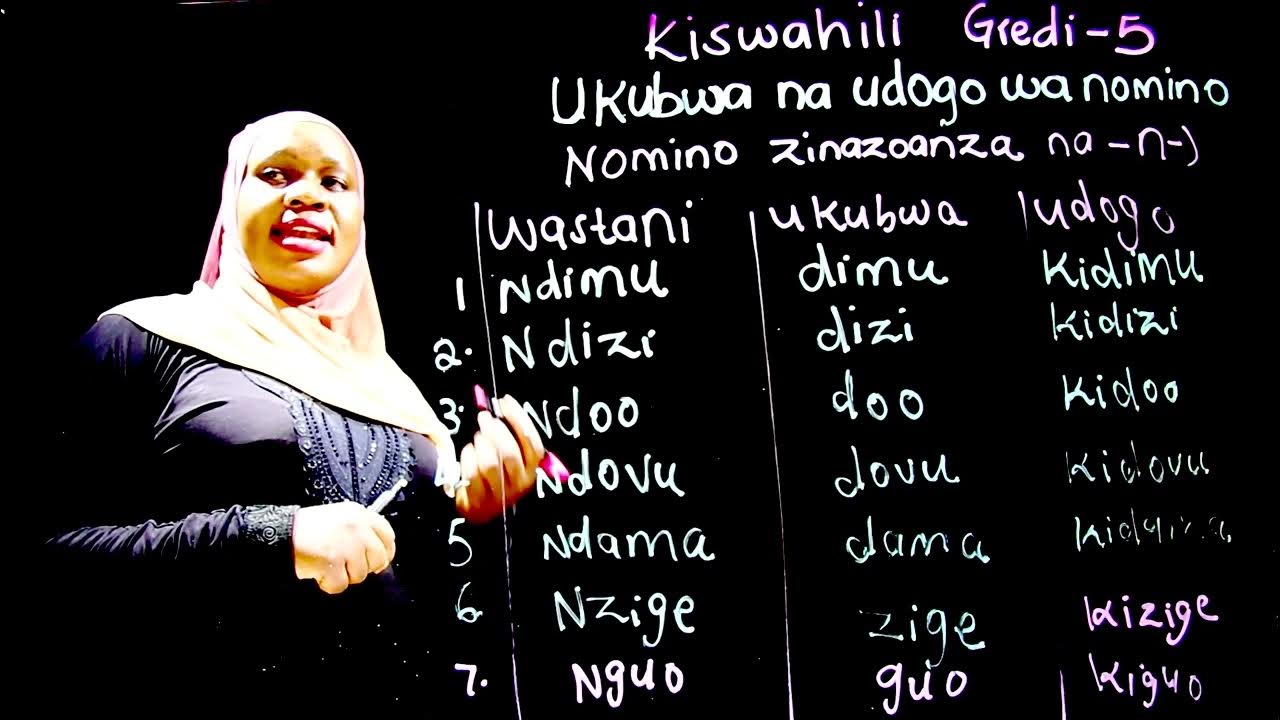 Kiswahili Gredi-5
Ukubwa na udogo wa nomino
Nomino zinazoanza na -n-)
Wastani ukubwa udogo
1 Ndimu dimu Kidimu
2. Ndizi dizi Kidizi
3. Ndoo doo Kidoo
Ndovu dovu Kidovu
5 Ndama dama
6 Nzige zige Kizige
7. Nguo guo Kiguo